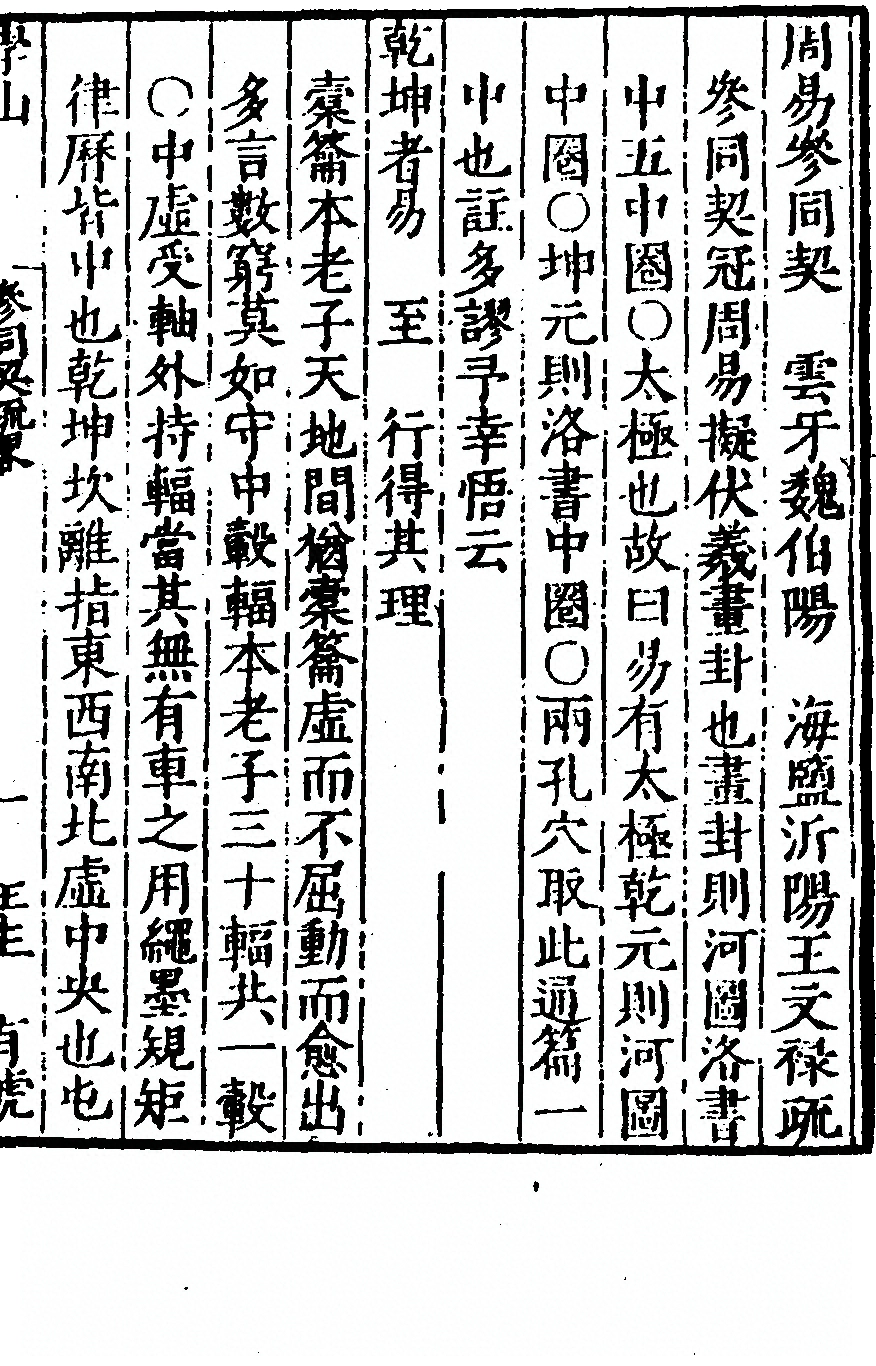 周易參同契　雲牙魏伯陽　海鹽沂陽王文祿疏
參同契冠周易擬伏羲畫卦也畫卦則河圖洛書
中五中圈○太極也故曰易有太極乾元則河圖
中圈○坤元則洛書中圈○兩孔穴取此通篇一
中也註多謬予幸悟云
乾坤者易　至　行得其理
橐籥本老子天地間猶橐籥虛而不屈動而愈出
多言數窮莫如守中轂輻本老子三十輻共一轂
○中虛受軸外持輻當其無有車之用繩墨規矩
律曆皆中也乾坤坎離指東西南北虛中央也屯
學山　參同契疏畧　一　王生　有虎